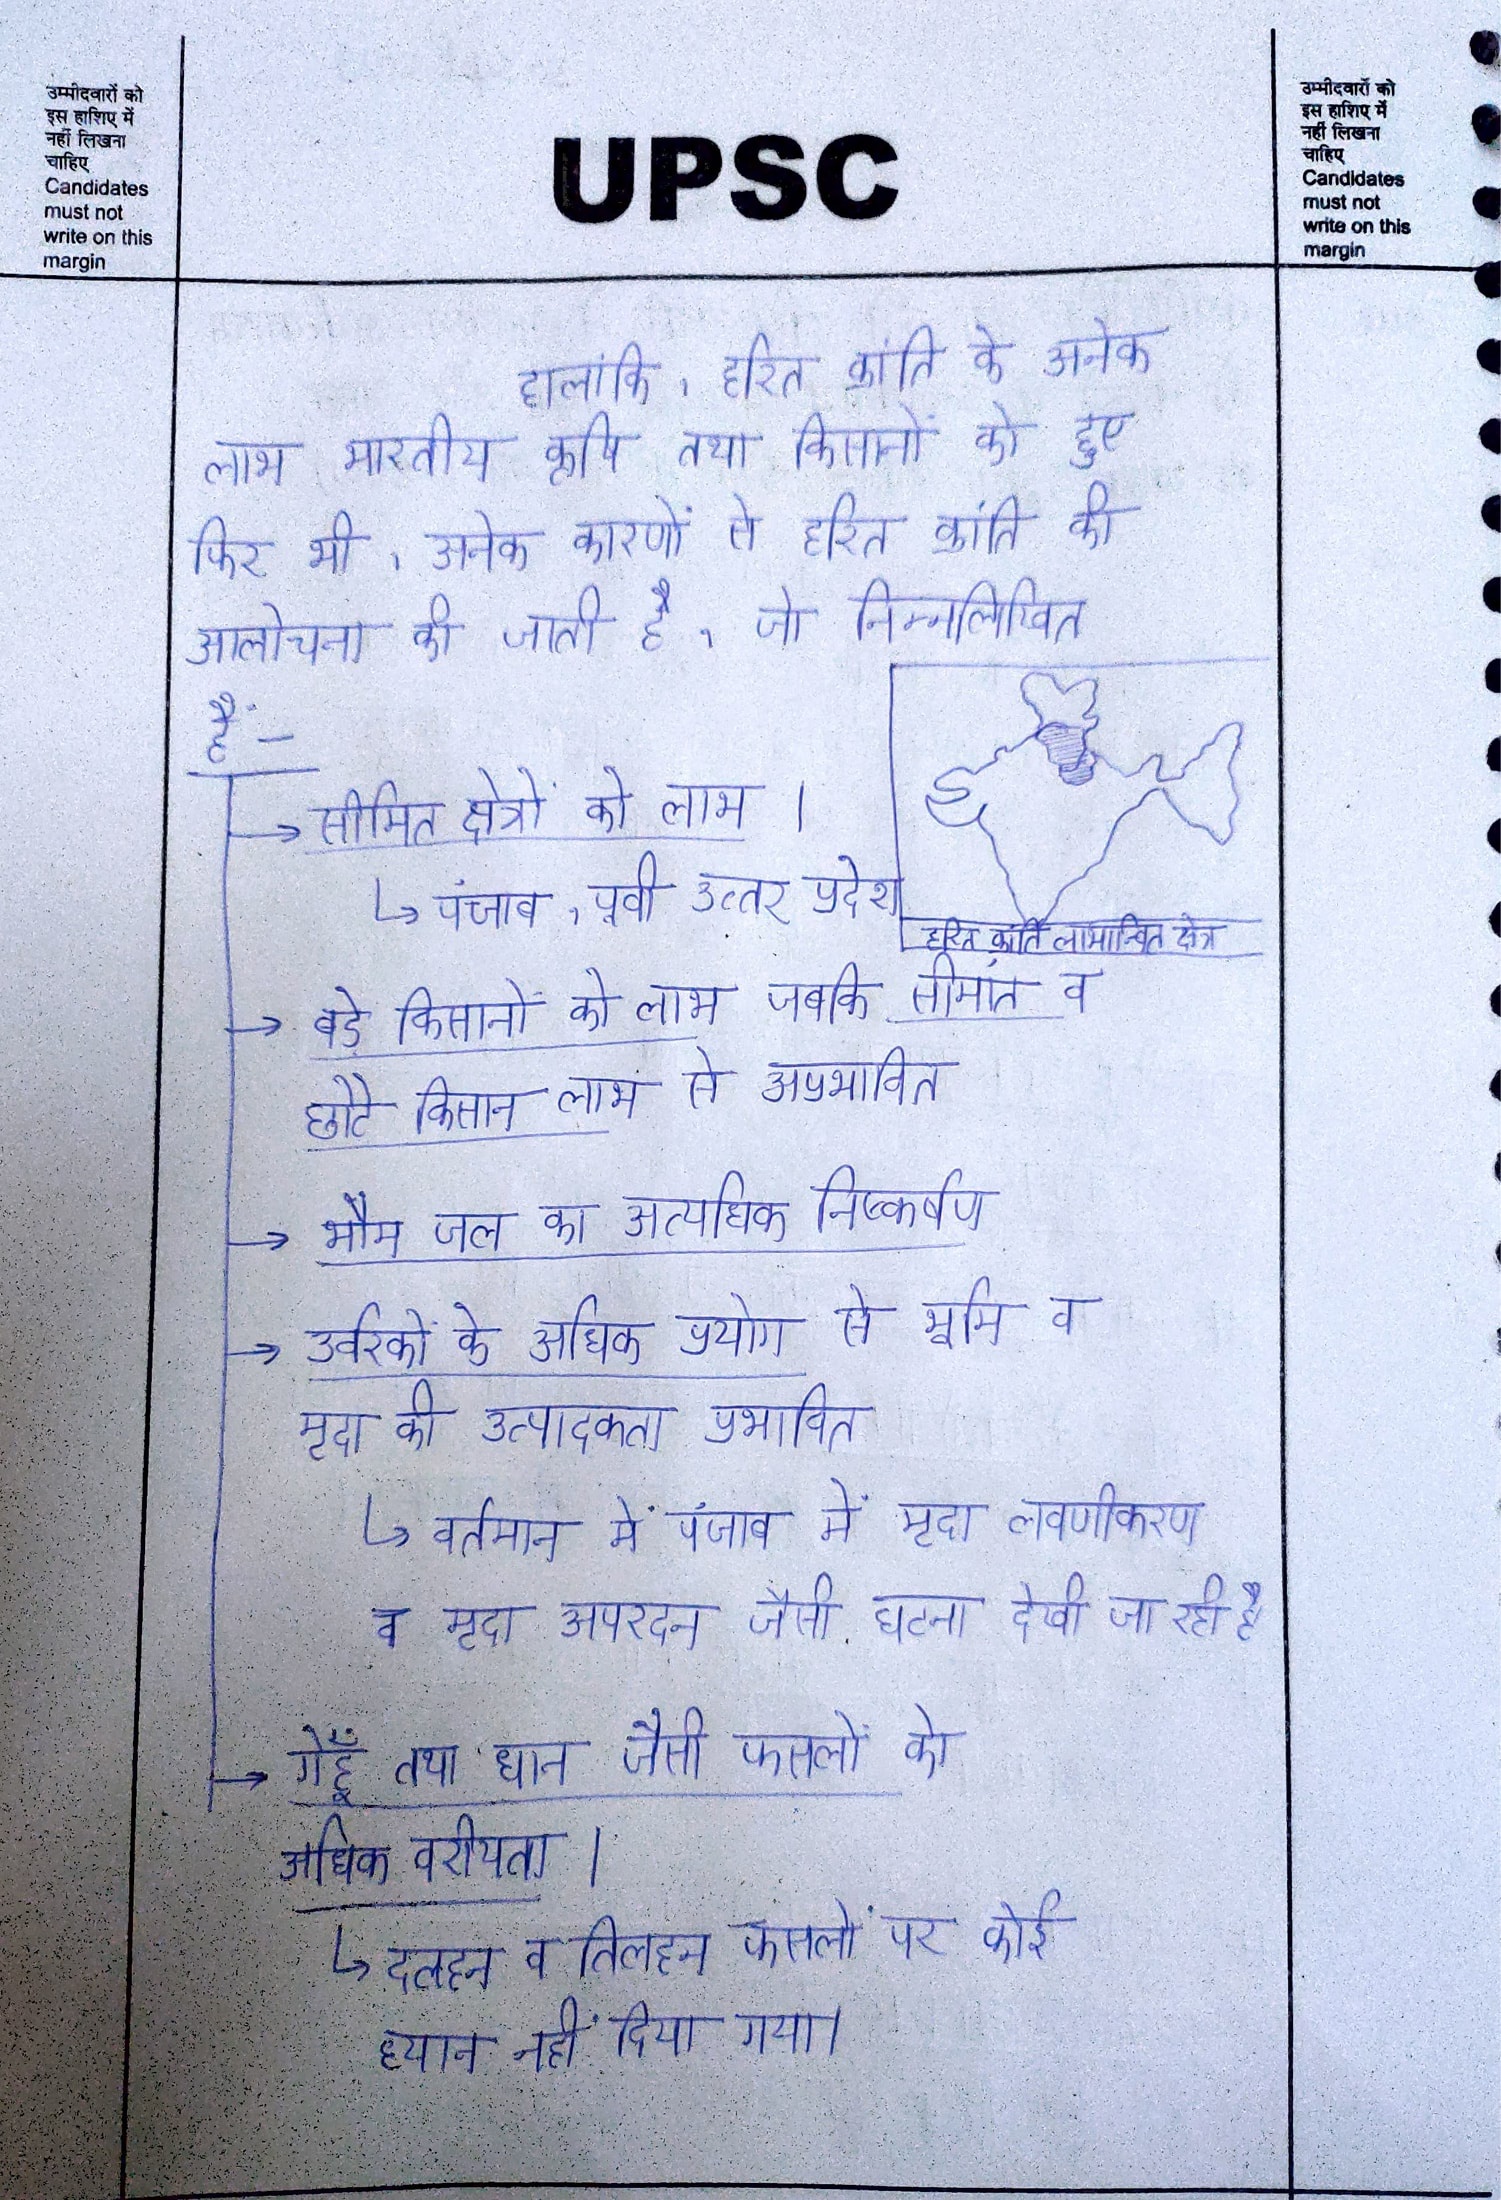 उम्मीदवारों को
इस हाशिए में
नहीं लिखना
चाहिए
Candidates
must not
write on this
margin
UPSC
उम्मीदवारों को
इस हाशिए में
नहीं लिखना
चाहिए
Candidates
must not
write on this
margin
हालांकि, हरित क्रांति के अनेक
लाभ भारतीय कृषि तथा किसानों को हुए
फिर भी, अनेक कारणों से हरित क्रांति की
आलोचना की जाती है, जो निम्नलिखित
हैं -
→ सीमित क्षेत्रों को लाभ ।
↳ पंजाब, पूर्वी उत्तर प्रदेश
हरित क्रांति लाभान्वित क्षेत्र
→ बड़े किसानों को लाभ जबकि सीमांत व
छोटे किसान लाभ से अप्रभावित
→ भौम जल का अत्यधिक निष्कर्षण
→ उर्वरकों के अधिक प्रयोग से भूमि व
मृदा की उत्पादकता प्रभावित
↳ वर्तमान में पंजाब में मृदा लवणीकरण
व मृदा अपरदन जैसी घटना देखी जा रही है
→ गेहूँ तथा धान जैसी फसलों को
अधिक वरीयता ।
↳ दलहन व तिलहन फसलों पर कोई
ध्यान नहीं दिया गया।